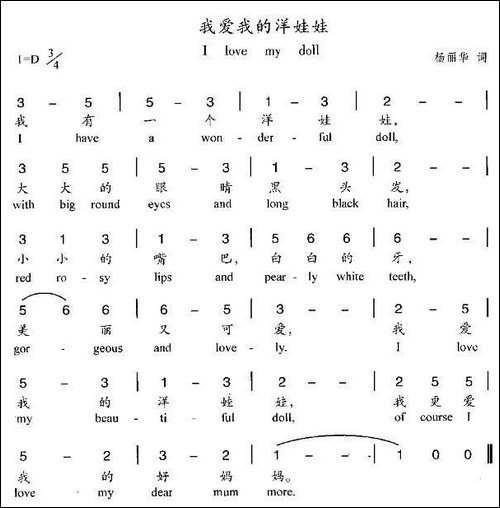 我爱我的洋娃娃
I love my doll
1=D 3/4
杨丽华 词
3 - 5 | 5 - 3 | 1 - 3 | 2 - - |
我 有 一 个 洋 娃 娃,
I have a won - der - ful doll,
3 5 5 | 5 - 3 | 1 - 3 | 2 - - |
大 大 的 眼 睛 黑 头 发,
with big round eyes and long black hair,
3 1 3 | 1 - 3 | 5 6 6 | 6 - - |
小 小 的 嘴 巴, 白 白 的 牙,
red ro - sy lips and pear - ly white teeth,
5 6 6 | 6 - 5 | 3 - - | 2 - 5 |
美 丽 又 可 爱, 我 爱
gor - geous and love - ly. I love
5 - 3 | 1 - 3 | 2 - - | 2 5 5 |
我 的 洋 娃 娃, 我 更 爱
my beau - ti - ful doll, of course I
5 - 2 | 3 - 2 | 1 - - | 1 0 0 ‖
我 的 好 妈 妈。
love my dear mum more.